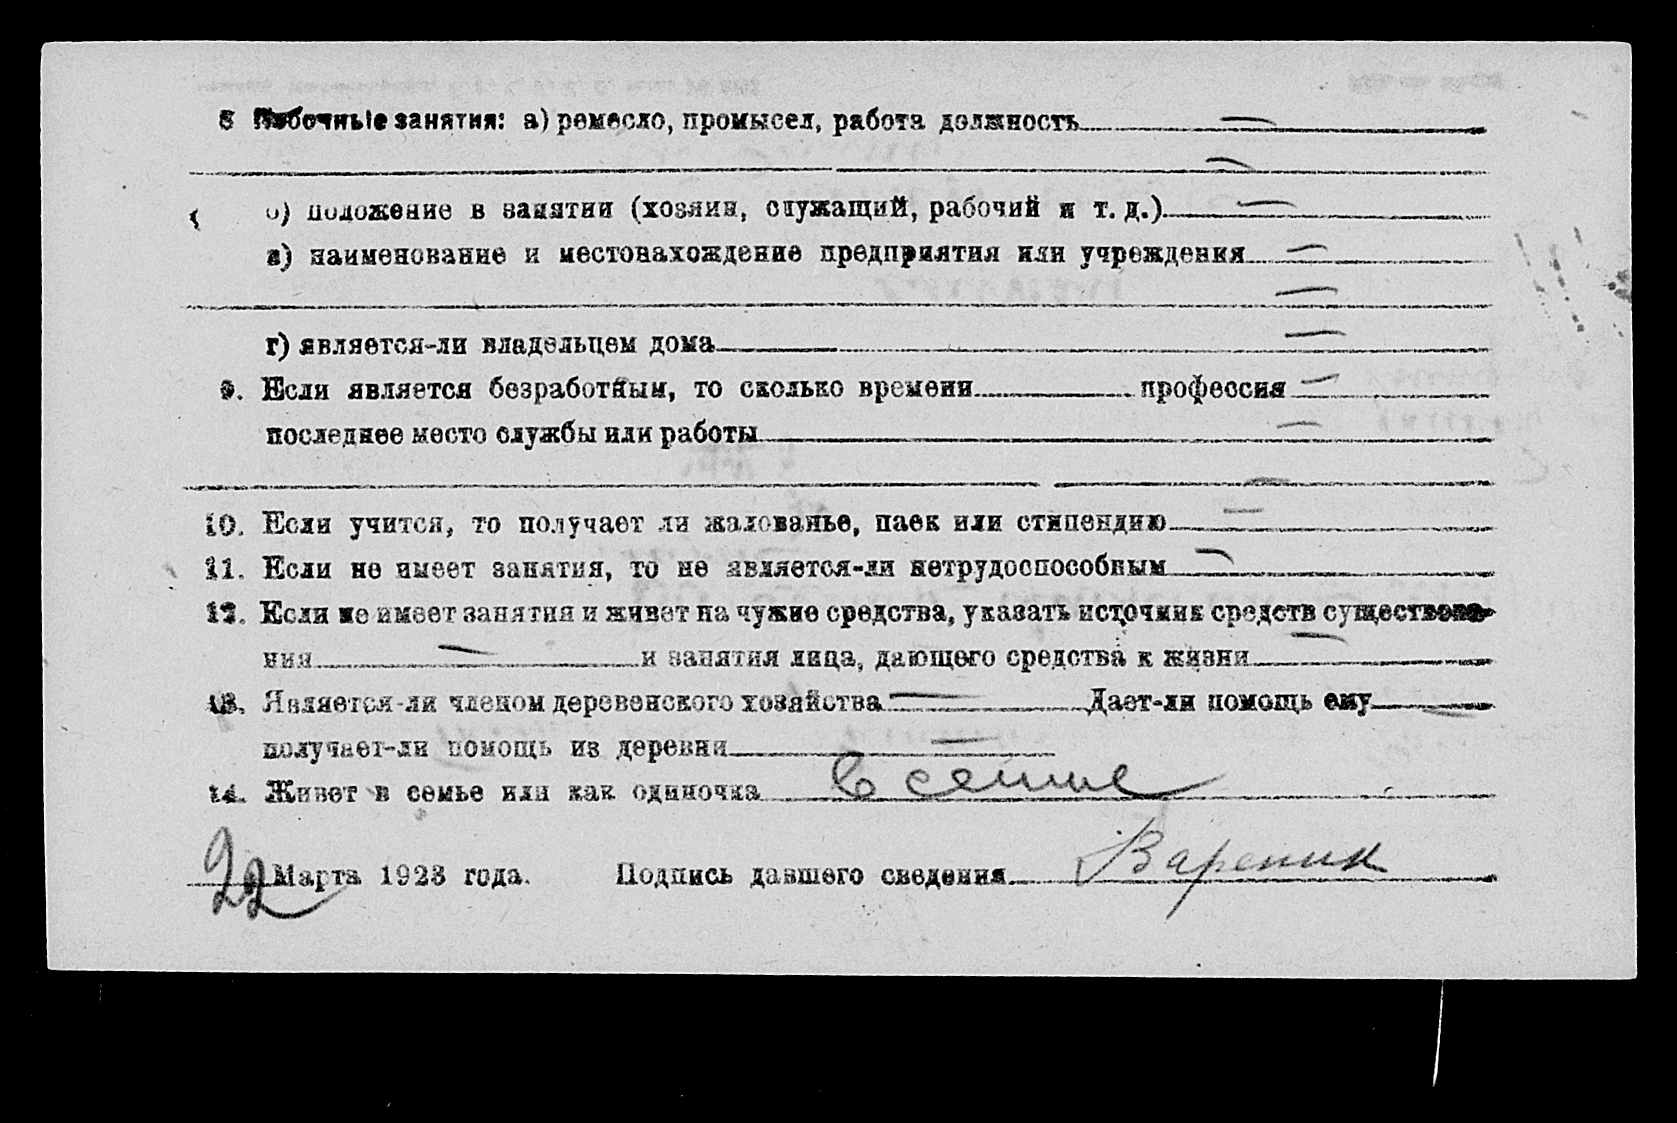 8 Побочные занятия: а) ремесло, промысел, работа должность —
—
б) положение в занятии (хозяин, служащий, рабочий и т. д.) —
в) наименование и местонахождение предприятия или учреждения —
—
г) является-ли владельцем дома —
9. Если является безработным, то сколько времени профессия —
последнее место службы или работы —
—
10. Если учится, то получает ли жалованье, паек или стипендию —
11. Если не имеет занятия, то не является-ли нетрудоспособным —
12. Если не имеет занятия и живет на чужие средства, указать источник средств существова-
ния — и занятия лица, дающего средства к жизни —
13. Является-ли членом деревенского хозяйства — Дает-ли помощь ему —
получает-ли помощь из деревни —
14. Живет в семье или как одиночка В семье
22 Марта 1923 года. Подпись давшего сведения Вареник